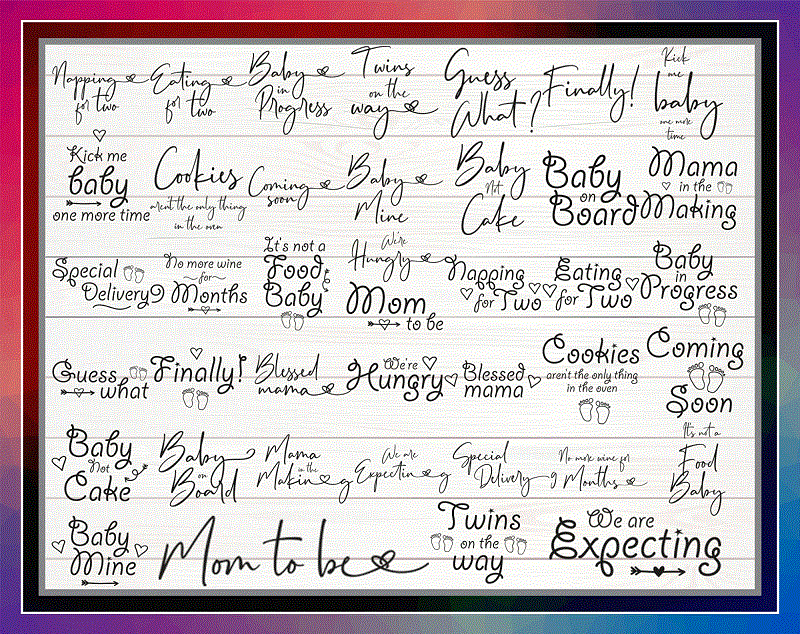 Napping
for two
Eating
for two
Baby
in
Progress
Twins
on the
way
Guess
What?
Finally!
Kick
me
baby
one more
time
Kick me
baby
one more time
Cookies
aren't the only thing
in the oven
Coming
soon
Baby
Mine
Baby
Not
Cake
Baby
on
Board
Mama
in the
Making
Special
Delivery
No more wine
for
9 Months
It's not a
Food
Baby
We're
Hungry
Mom
to be
Napping
for Two
Eating
for Two
Baby
in
Progress
Guess
what
Finally!
Blessed
mama
We're
Hungry
Blessed
mama
Cookies
aren't the only thing
in the oven
Coming
Soon
Baby
not
Cake
Baby
on
Board
Mama
in the
Making
We are
Expecting
Special
Delivery
No more wine for
9 Months
It's not a
Food
Baby
Baby
Mine
Mom to be
Twins
on the
way
We are
Expecting